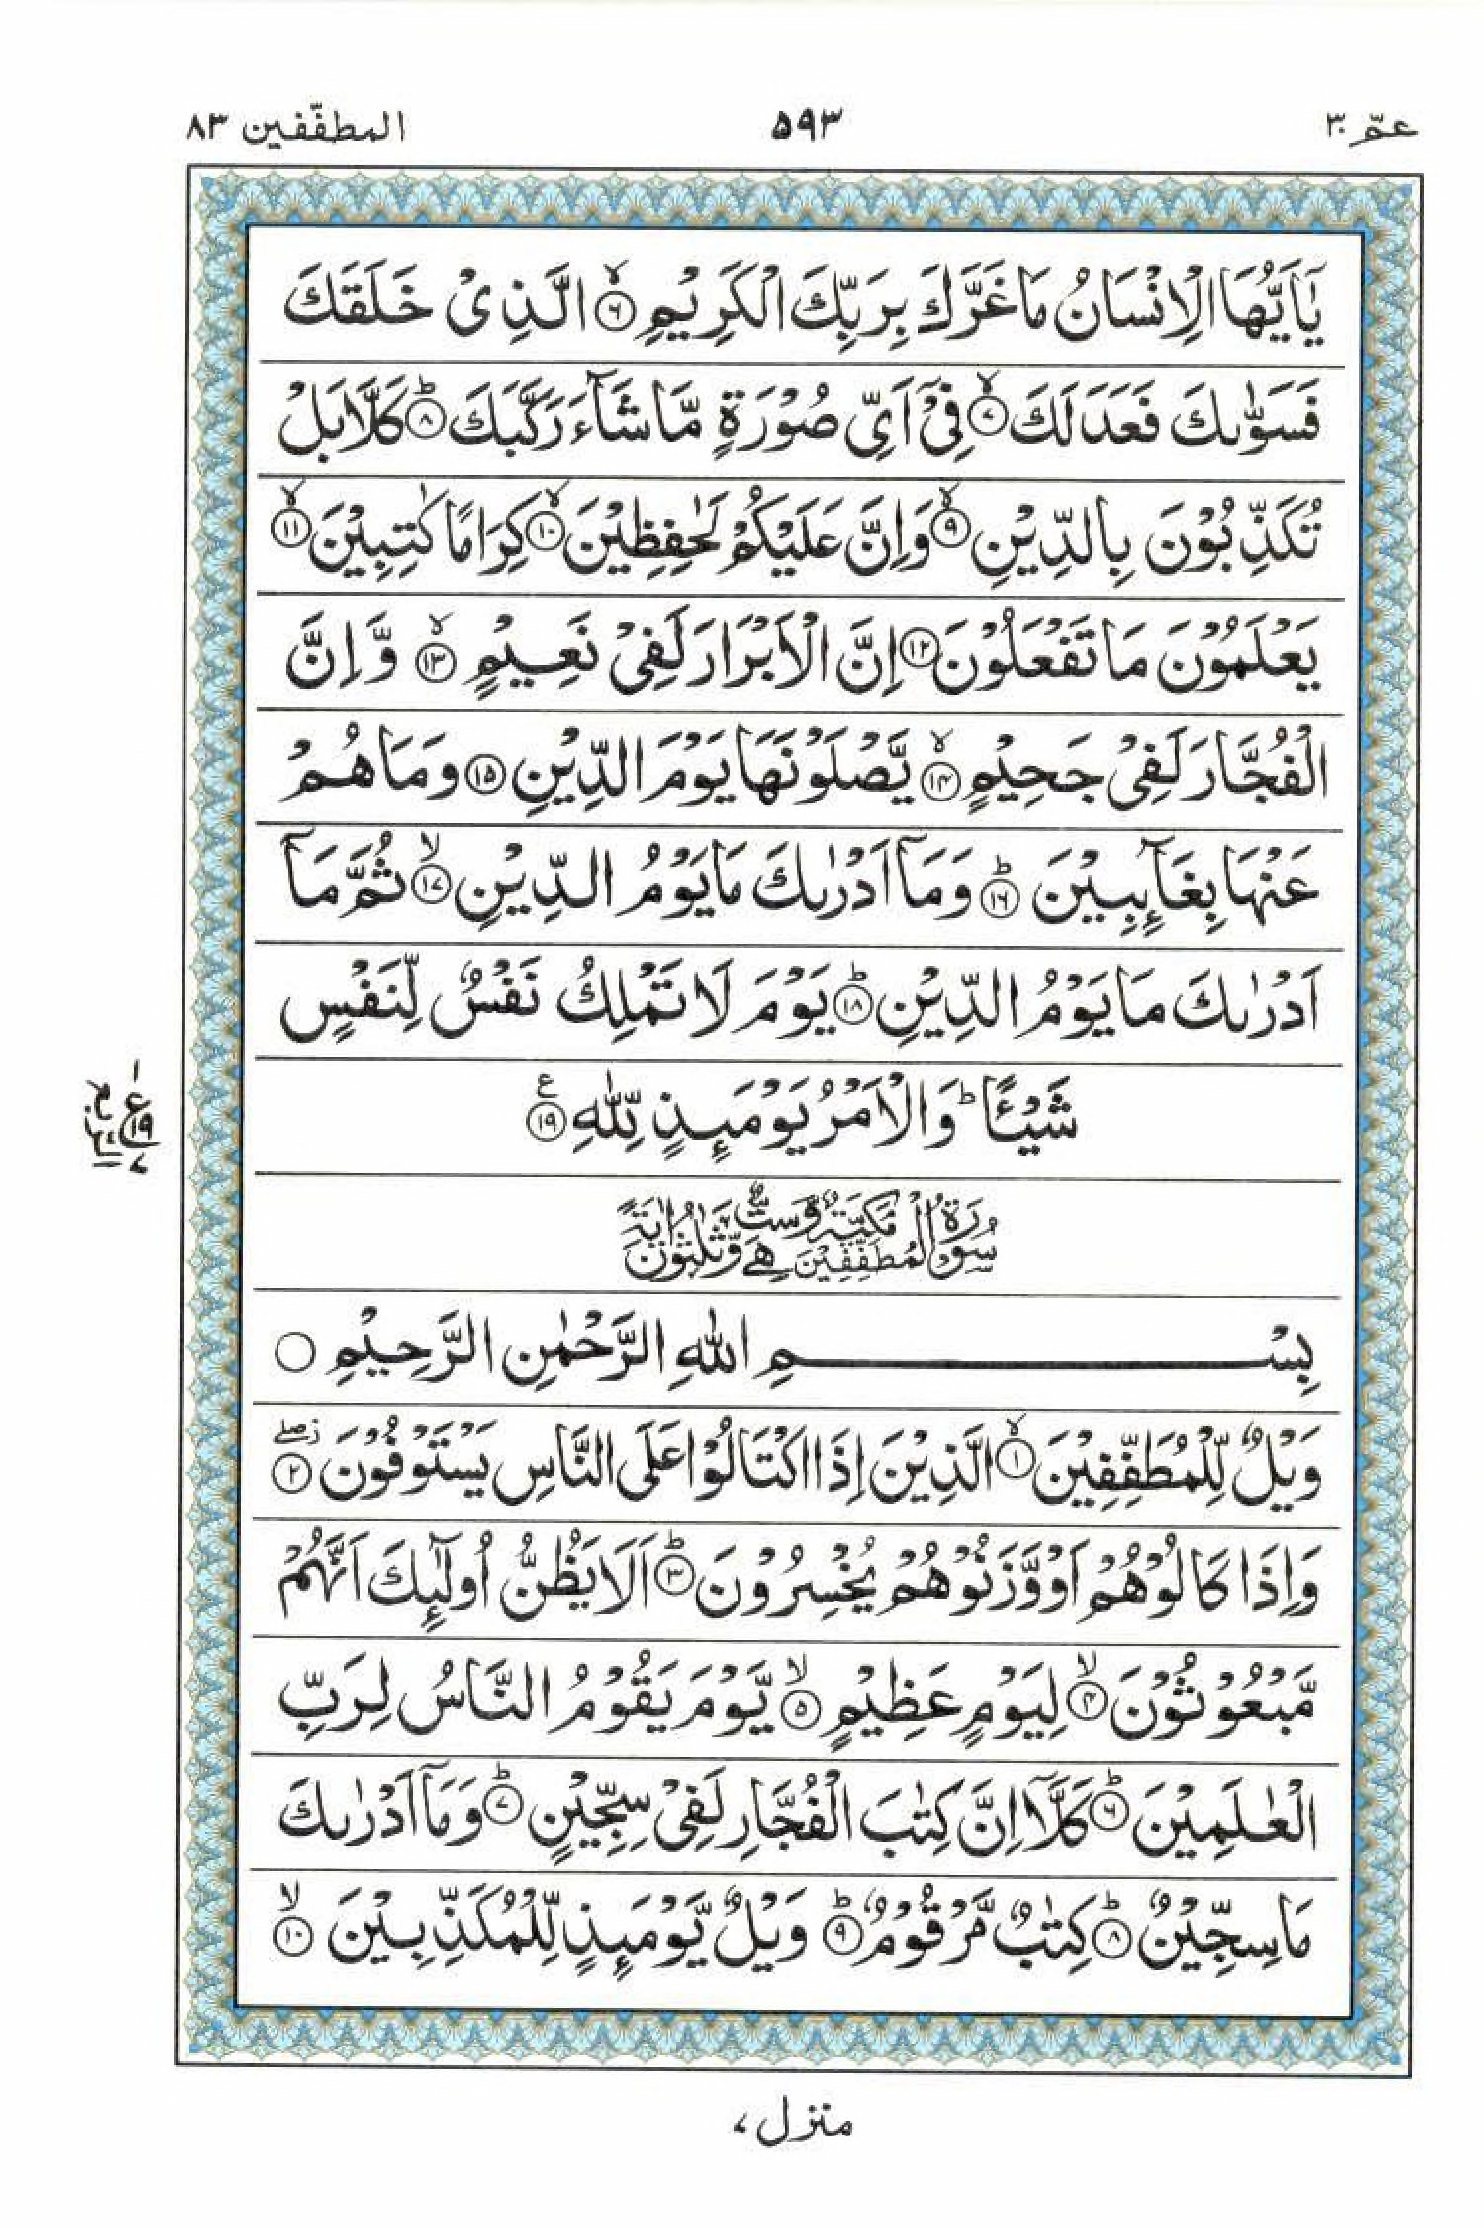 عمّ ٣٠ ٥٩٣ المطفّفين ٨٣
يٰۤاَيُّهَا الْاِنْسَانُ مَا غَرَّكَ بِرَبِّكَ الْكَرِيْمِ ۙ﴿٦﴾ الَّذِيْ خَلَقَكَ
فَسَوّٰىكَ فَعَدَلَكَ ۙ﴿٧﴾ فِيْۤ اَيِّ صُوْرَةٍ مَّا شَآءَ رَكَّبَكَ ؕ﴿٨﴾ كَلَّا بَلْ
تُكَذِّبُوْنَ بِالدِّيْنِ ۙ﴿٩﴾ وَاِنَّ عَلَيْكُمْ لَحٰفِظِيْنَ ۙ﴿١٠﴾ كِرَامًا كٰتِبِيْنَ ۙ﴿١١﴾
يَعْلَمُوْنَ مَا تَفْعَلُوْنَ ﴿١٢﴾ اِنَّ الْاَبْرَارَ لَفِيْ نَعِيْمٍ ۙ﴿١٣﴾ وَّاِنَّ
الْفُجَّارَ لَفِيْ جَحِيْمٍ ۙ﴿١٤﴾ يَّصْلَوْنَهَا يَوْمَ الدِّيْنِ ﴿١٥﴾ وَمَا هُمْ
عَنْهَا بِغَآئِبِيْنَ ؕ﴿١٦﴾ وَمَاۤ اَدْرٰىكَ مَا يَوْمُ الدِّيْنِ ۙ﴿١٧﴾ ثُمَّ مَاۤ
اَدْرٰىكَ مَا يَوْمُ الدِّيْنِ ؕ﴿١٨﴾ يَوْمَ لَا تَمْلِكُ نَفْسٌ لِّنَفْسٍ
شَيْـًٔا ؕ وَالْاَمْرُ يَوْمَئِذٍ لِّلّٰهِ ۧ﴿١٩﴾
سُوْرَةُ الْمُطَفِّفِيْنَ مَكِّيَّةٌ وَّهِيَ سِتٌّ وَّثَلٰثُوْنَ اٰيَةً
بِسْمِ اللّٰهِ الرَّحْمٰنِ الرَّحِيْمِ ۝
وَيْلٌ لِّلْمُطَفِّفِيْنَ ۙ﴿١﴾ الَّذِيْنَ اِذَا اكْتَالُوْا عَلَى النَّاسِ يَسْتَوْفُوْنَ ۖ﴿٢﴾
وَاِذَا كَالُوْهُمْ اَوْ وَّزَنُوْهُمْ يُخْسِرُوْنَ ؕ﴿٣﴾ اَلَا يَظُنُّ اُولٰٓئِكَ اَنَّهُمْ
مَّبْعُوْثُوْنَ ۙ﴿٤﴾ لِيَوْمٍ عَظِيْمٍ ۙ﴿٥﴾ يَّوْمَ يَقُوْمُ النَّاسُ لِرَبِّ
الْعٰلَمِيْنَ ؕ﴿٦﴾ كَلَّاۤ اِنَّ كِتٰبَ الْفُجَّارِ لَفِيْ سِجِّيْنٍ ؕ﴿٧﴾ وَمَاۤ اَدْرٰىكَ
مَا سِجِّيْنٌ ؕ﴿٨﴾ كِتٰبٌ مَّرْقُوْمٌ ؕ﴿٩﴾ وَيْلٌ يَّوْمَئِذٍ لِّلْمُكَذِّبِيْنَ ۙ﴿١٠﴾
منزل ٧